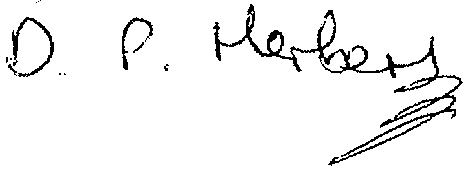 D. P. Herbert